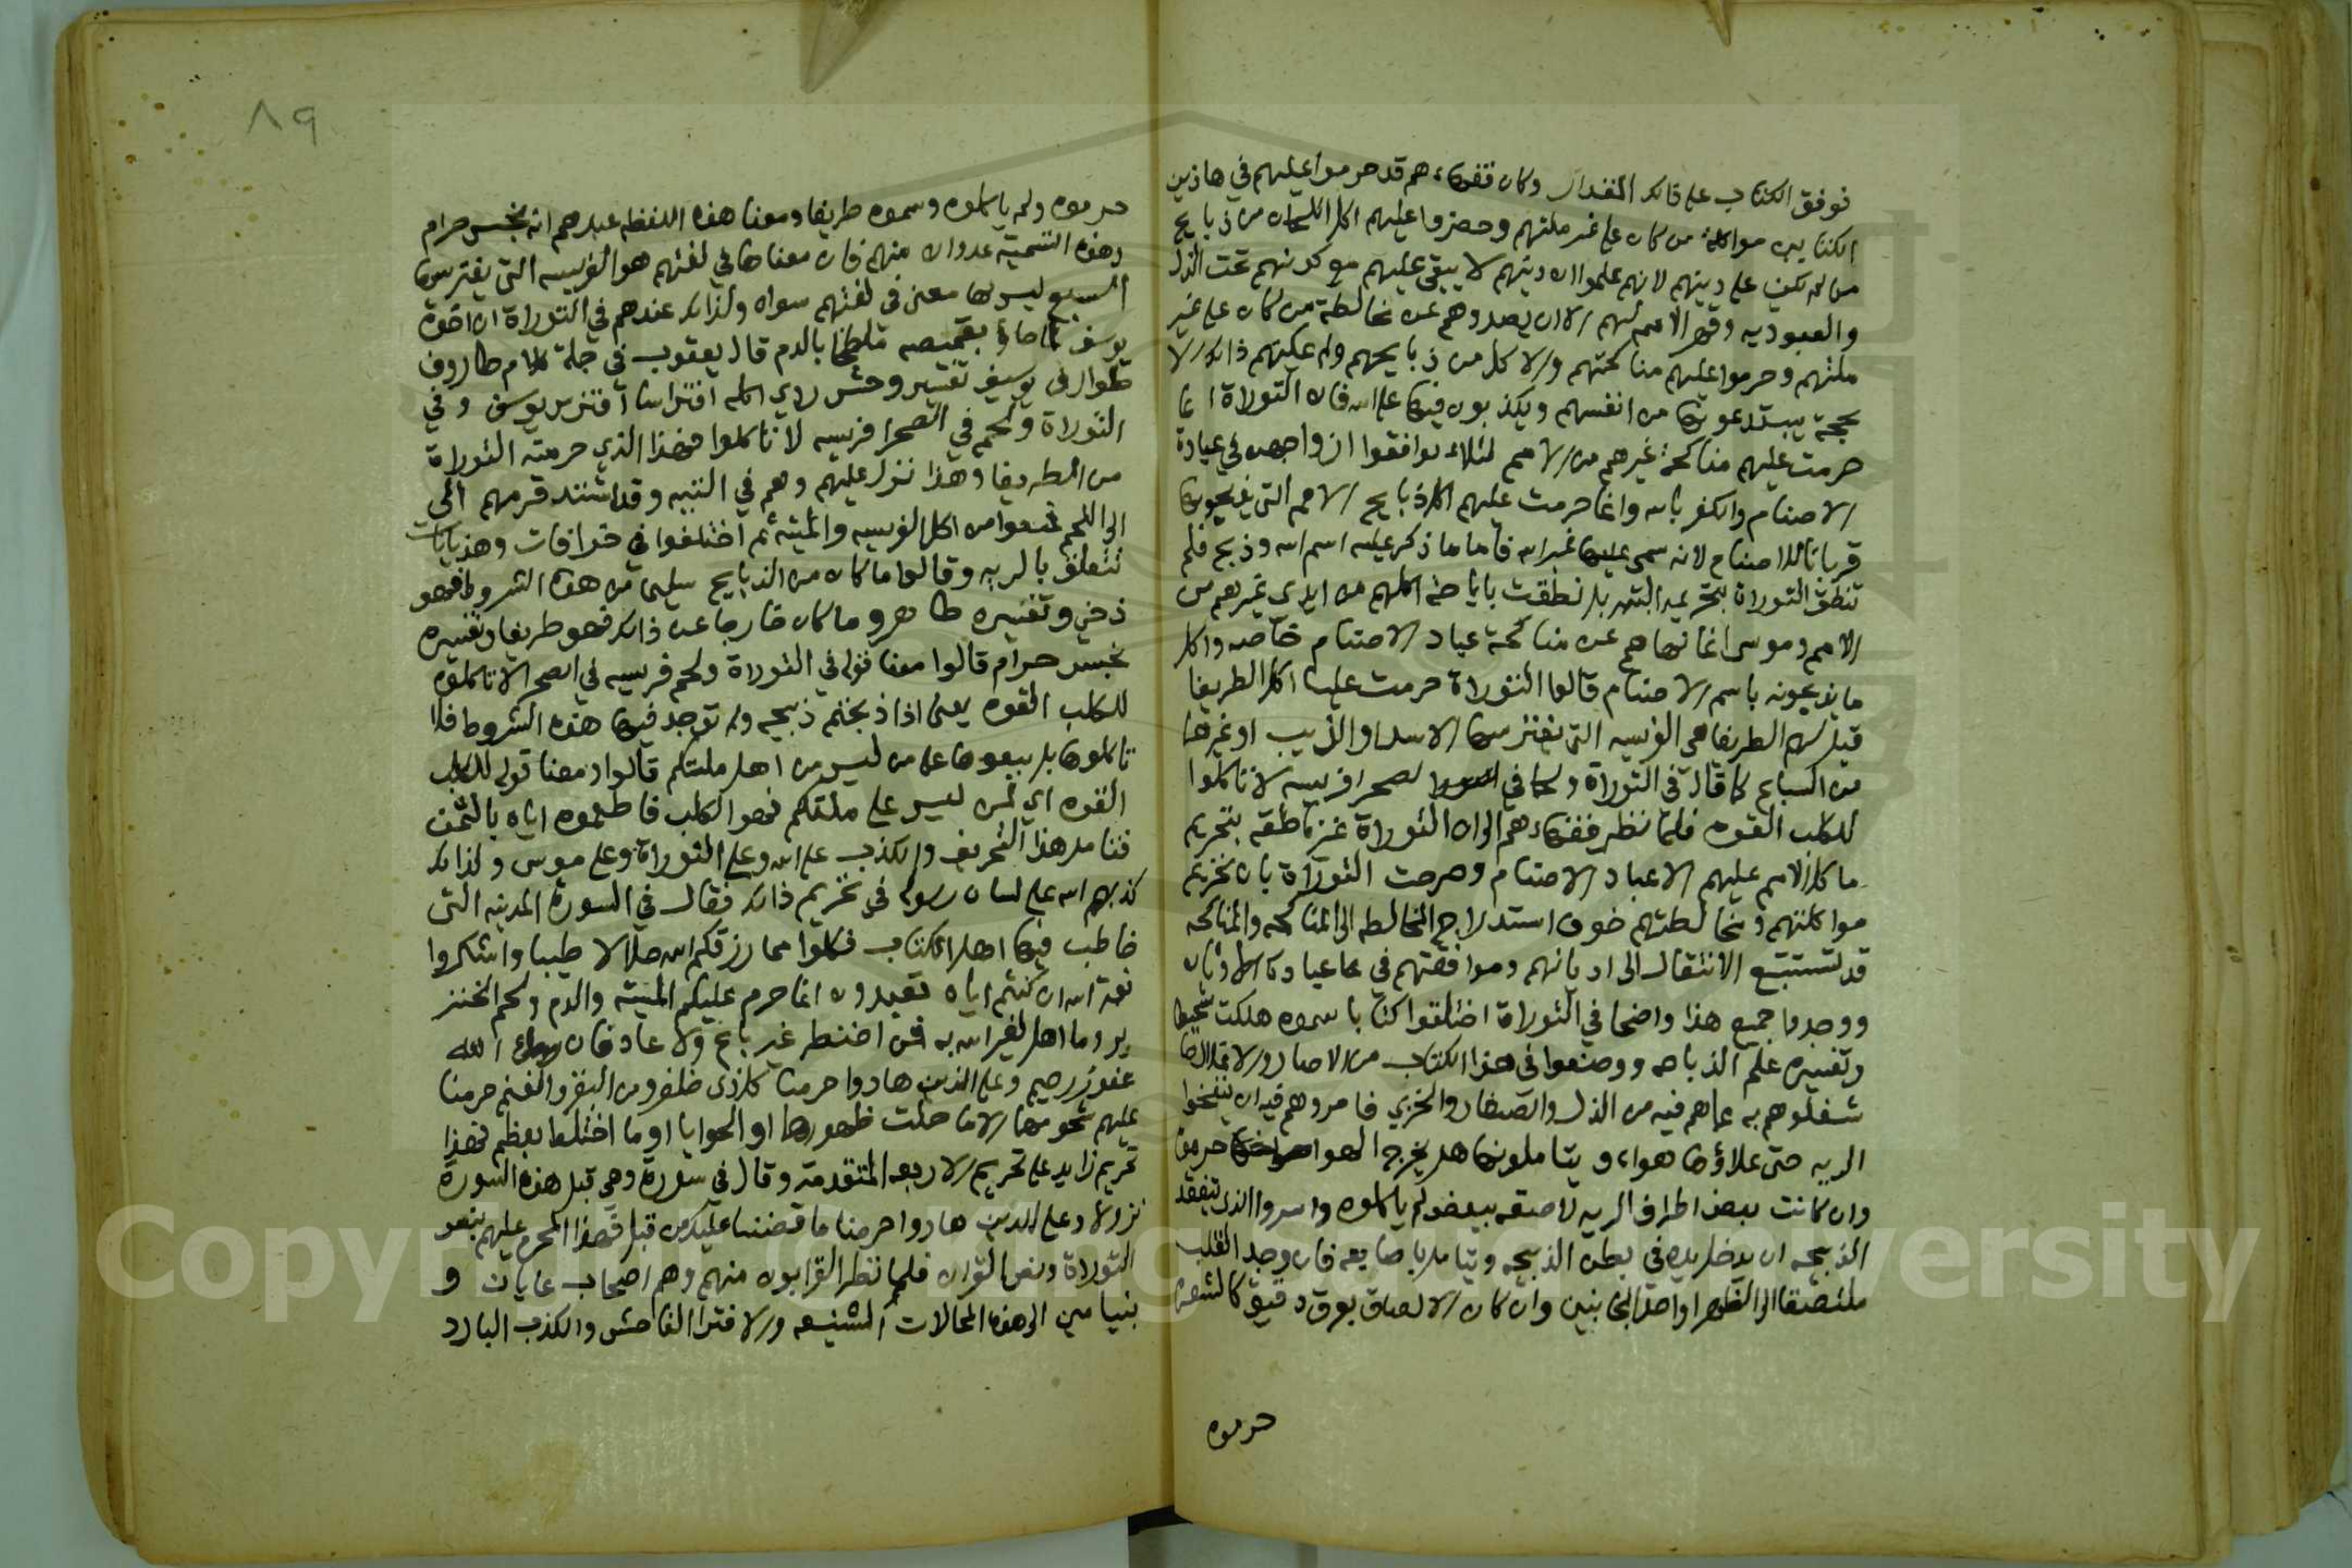 فوفق الكتاب على ذالك المقدار وكان فقهاءهم قد حرموا عليهم في هاذين
الكتابين مواكلة من كان على غير ملتهم وحضروا عليهم اكل اللحمان من ذبايح
من لم يكن على دينهم لانهم علموا ان دينهم لا يبقى عليهم مع كونهم تحت الذل
والعبوديه وقهر الامم لهم الا ان يصدوهم عن مخالطة من كان على غير
ملتهم وحرموا عليهم مناكحتهم والاكل من ذبايحهم ولم يمكنهم ذالك الا
بحجة يبتدعونها من انفسهم ويكذبون فيها على الله فان التوراة انما
حرمت عليهم مناكحة غيرهم من الامم لئلاء يوافقوا ازواجهم في عبادة
الاصنام والكفر بالله وانما حرمت عليهم اكل ذبايح الامم التي يذبحونها
قربانا للاصنام لانه سمى عليها غير الله فاما ما ذكر عليه اسم الله وذبح فلم
تنطق التوراة بتحريمه البته بل نطقت باباحة اكلهم من ايدي غيرهم من
الامم وموسى انما نهاهم عن مناكحة عباد الاصنام خاصه واكل
ما يذبحونه باسم الاصنام قالوا التوراة حرمت علينا اكل الطريفا
قيل لهم الطريفا هي الفريسه التي يفترسها الاسد او الذيب او غيرها
من السباع كما قال في التوراة ولحما في لصحرا فريسه لا تاكلوا
للكلب القوه فلما نظر فقهاءهم الى ان التوراة غير ناطقه بتحريم
ماكل الامم عليهم الا عباد الاصنام وصرحت التوراة بان تحريم
مواكلتهم ومخالطتهم خوف استدراج المخالطه الى المناكحه والمناكحه
قد تستتبع الانتقال الى اديانهم وموافقتهم في عبادة الاوثان
ووجدوا جميع هذا واضحا في التوراة اختلقوا كتابا سموه هلكت شحيطا
وتفسيره علم الذباحه ووضعوا في هذا الكتاب من الاصار والاغلال ما
شغلوهم به عما هم فيه من الذل والصغار والخزي فامروهم فيه ان ينفخوا
الريه حتى يملاؤها هواء ويتاملونها هل يخرج الهوا حرموه
وان كانت بعض اطراف الريه لاصقه ببعض لم ياكلوه وامروا الذي يتفقد
الذبيحه ان يدخل يده في بطن الذبيحه ويتامل باصابعه فان وجد القلب
ملتصقا الى الظهر او احد الجانبين وان كان الالصاق بعرق دقيق كالشعره
حرموه
٨٩
حرموه ولم ياكلوه وسموه طريفا ومعنا هذه اللفظه عندهم انه نجس حرام
وهذه التسمية عدوان منهم فان معناها في لغتهم هو الفريسه التي يفترسها
السبع ليس لها معنى في لغتهم سواه ولذالك عندهم في التوراة ان اخوة
يوسف لما جاؤ بقميصه ملطخا بالدم قال يعقوب في جملة كلام طاروف
طوارف يوسيف تفسير وحش ردي اكله افتراسا افترس يوسف وفي
التوراة ولحم في الصحرا فريسه لا تاكلوا فهذا الذي حرمته التوراة
من الطريفا وهذا نزل عليهم وهم في التيه وقد اشتد قرمهم الى
الى اللحم فمنعوا من اكل الفريسه والميتة ثم اختلفوا في خرافات وهذيانات
تتعلق بالريه وقالوا ما كان من الذبايح سليما من هذه الشروط فهو
ذخي وتفسيره طاهر وما كان خارجا عن ذالك فهو طريفا وتفسيره
نجس حرام قالوا معنا قوله في التوراة ولحم فريسه في الصحرا لا تاكلوه
للكلب القوه يعنى اذا ذبحتم ذبيحه ولم توجد فيها هذه الشروط فلا
تاكلوها بل بيعوها على من ليس من اهل ملتكم قالوا ومعنا قوله للكلب
القوه اي لمن ليس على ملتكم فهو الكلب فاطعموه اياه بالثمن
فتامل هذا التحريف والكذب على الله وعلى التوراة وعلى موسى ولذالك
كذبهم الله على لسان رسوله في تحريم ذالك فقال في السورة المدينه التي
خاطب فيها اهل الكتاب فكلوا مما رزقكم الله حلالا طيبا واشكروا
نعمة الله ان كنتم اياه تعبدون انما حرم عليكم الميته والدم ولحم الخنز
ير وما اهل لغير الله به فمن اضطر غير باغ ولا عاد فان الله
غفور رحيم وعلى الذين هادوا حرمنا كل ذى ظلفر ومن البقر والغنم حرمنا
عليهم شحومهما الا ما حملت ظهورهما او الحوايا او ما اختلط بعظم فهذا
تحريم زايد على تحريم الاربعه المتقدمة وقال في سورة وهي قبل هذه السورة
نزولا وعلى الذين هادوا حرمنا ما قصصنا عليك من قبل فهذا المحرم عليهم بنص
التوراة ونص القران فلما نظر القرايون منهم وهم اصحاب عانان و
بنيامين الى هذه المحالات الشنيعه والافترا الفاحش والكذب البارد
Copyright © King Saud University